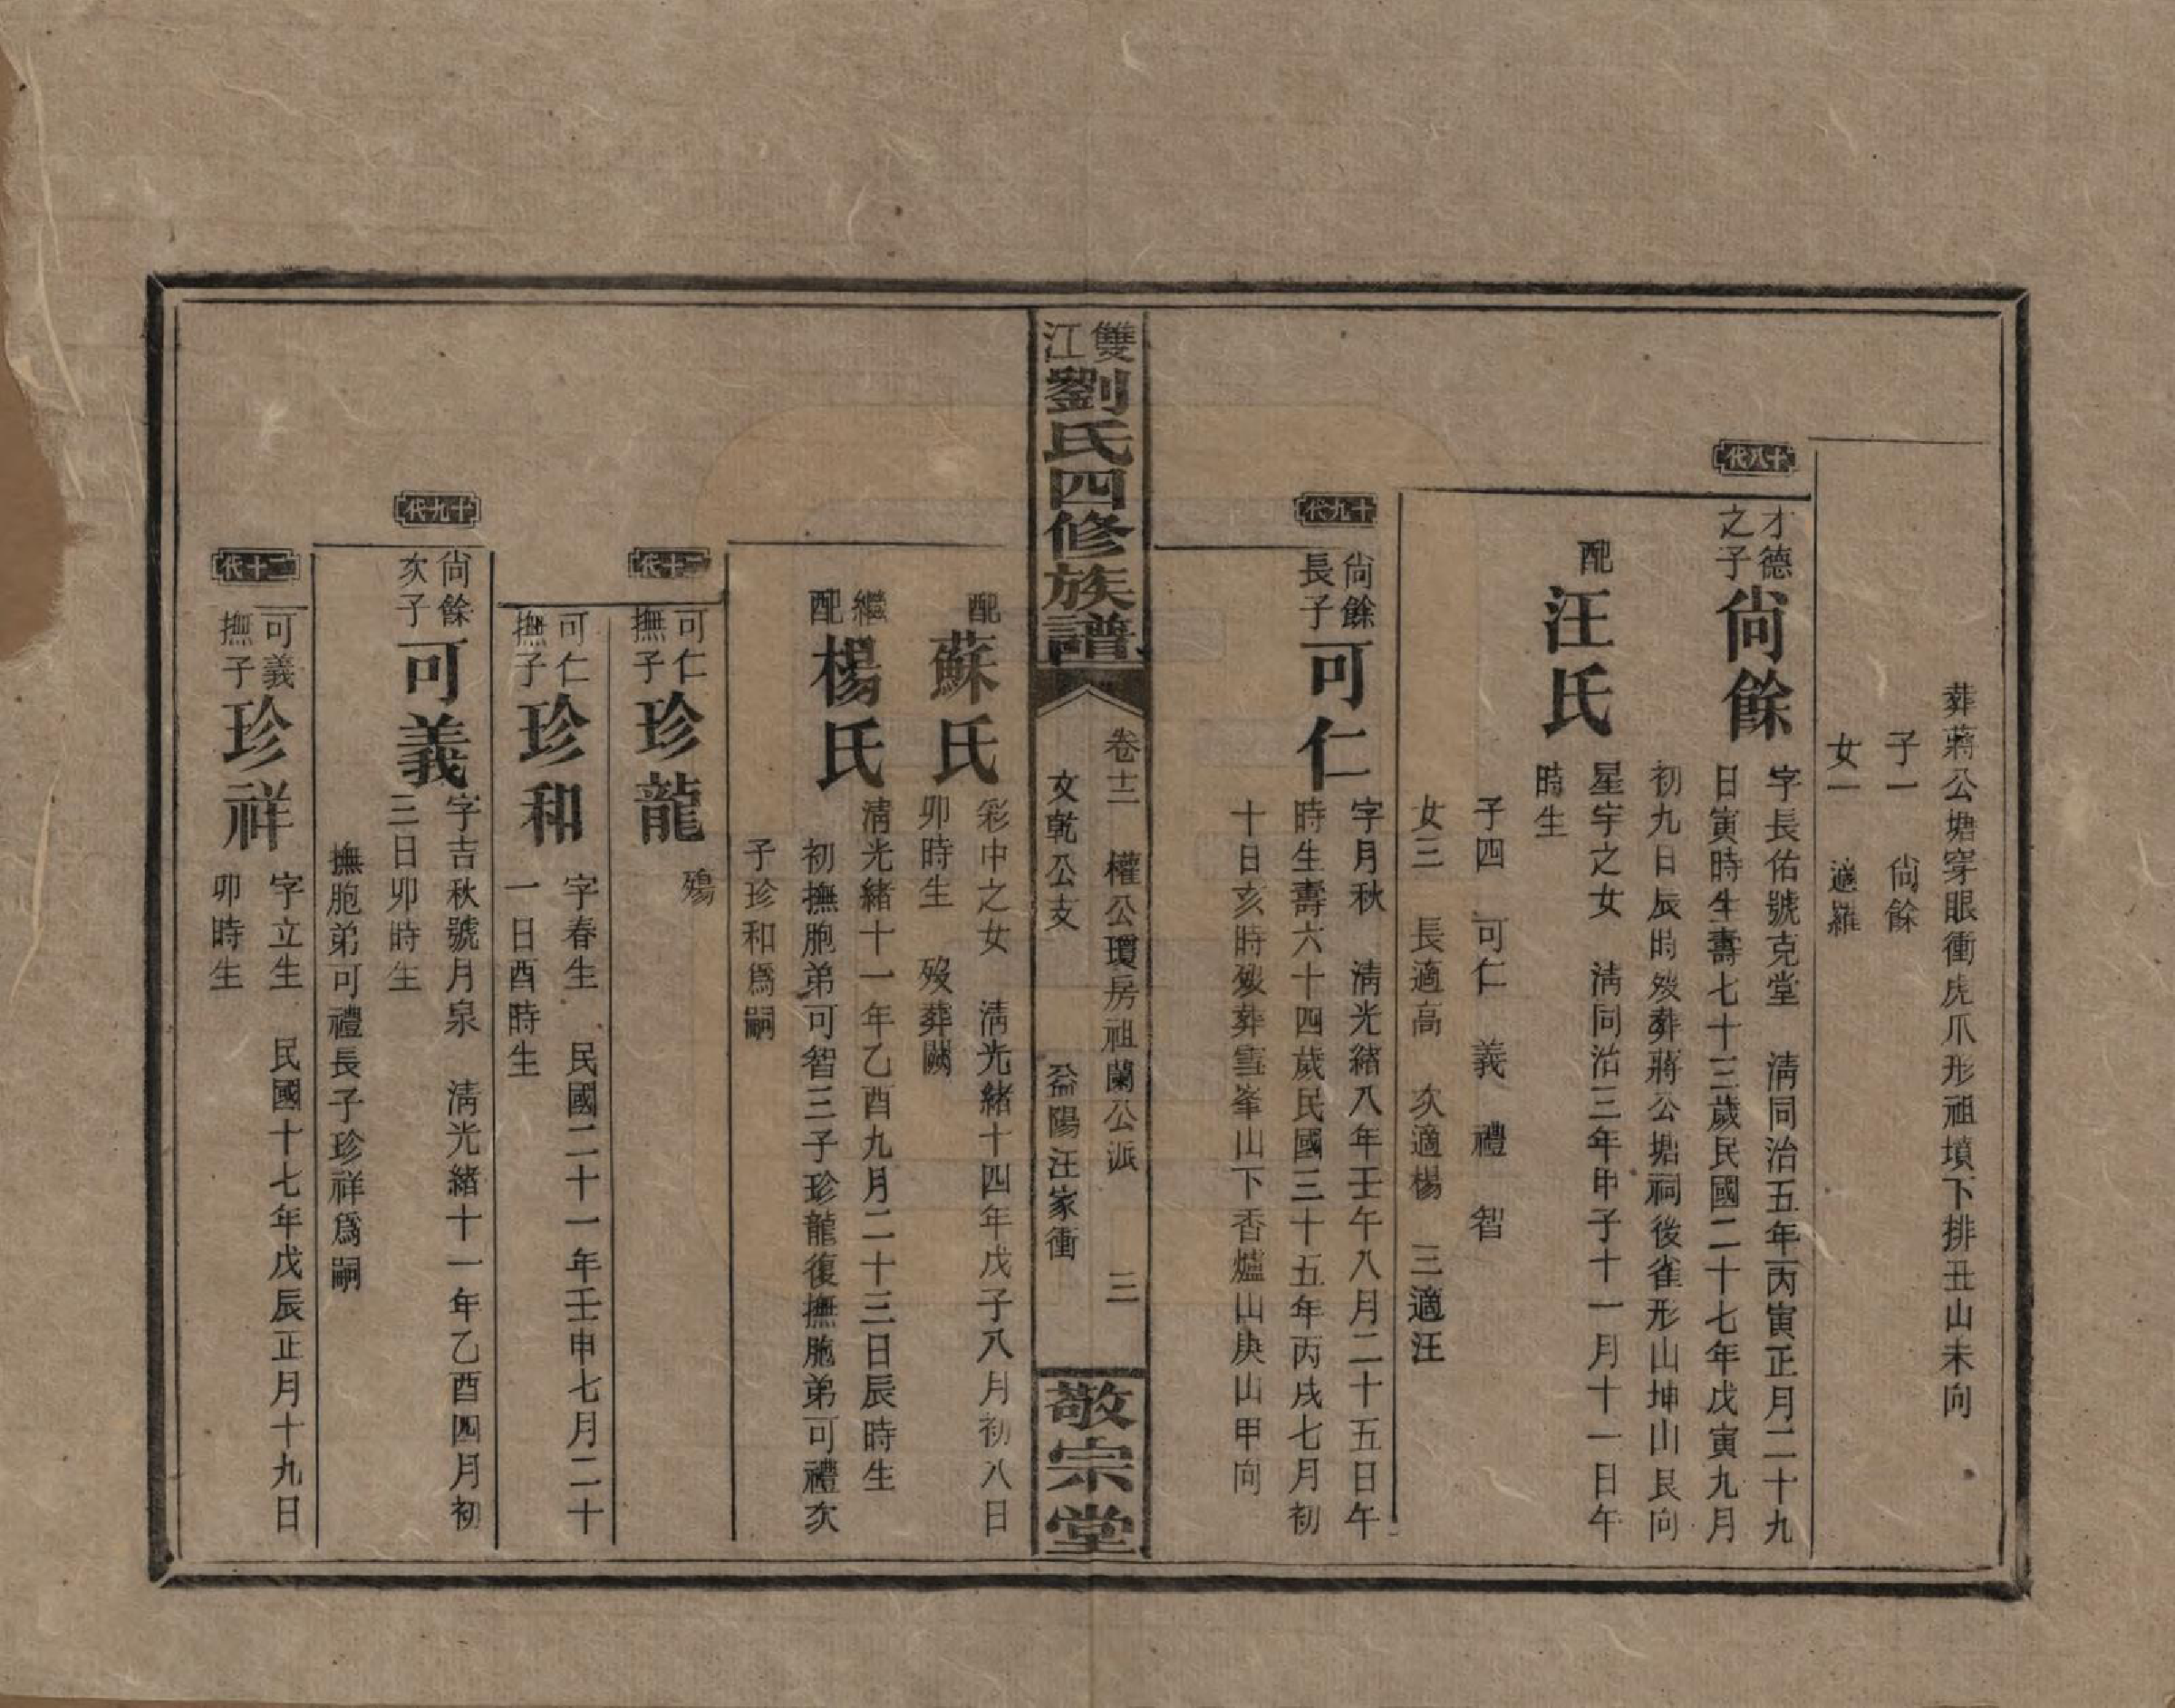 葬蔣公塘穿眼衝虎爪形祖墳下排丑山未向
子一　尙餘
女一　適羅
十八代
才德之子
尙餘
字長佑號克堂　淸同治五年丙寅正月二十九
日寅時生壽七十三歲民國二十七年戊寅九月
初九日辰時歿葬蔣公塘祠後雀形山坤山艮向
配
汪氏
星宇之女　淸同治三年甲子十一月十一日午
時生
子四　可仁　義　禮　智
女三　長適高　次適楊　三適汪
十九代
尙餘長子
可仁
字月秋　淸光緒八年壬午八月二十五日午
時生壽六十四歲民國三十五年丙戌七月初
十日亥時歿葬雪峯山下香爐山庚山甲向
雙江劉氏四修族譜
卷十二　權公瓊房祖蘭公派　三
文乾公支　益陽汪家衝
敬宗堂
配
蘇氏
彩中之女　淸光緒十四年戊子八月初八日
卯時生　歿葬闕
繼配
楊氏
淸光緒十一年乙酉九月二十三日辰時生
初撫胞弟可智三子珍龍復撫胞弟可禮次
子珍和爲嗣
二十代
可仁撫子
珍龍
殤
可仁撫子
珍和
字春生　民國二十一年壬申七月二十
一日酉時生
十九代
尙餘次子
可義
字吉秋號月泉　淸光緒十一年乙酉四月初
三日卯時生
撫胞弟可禮長子珍祥爲嗣
二十代
可義撫子
珍祥
字立生　民國十七年戊辰正月十九日
卯時生